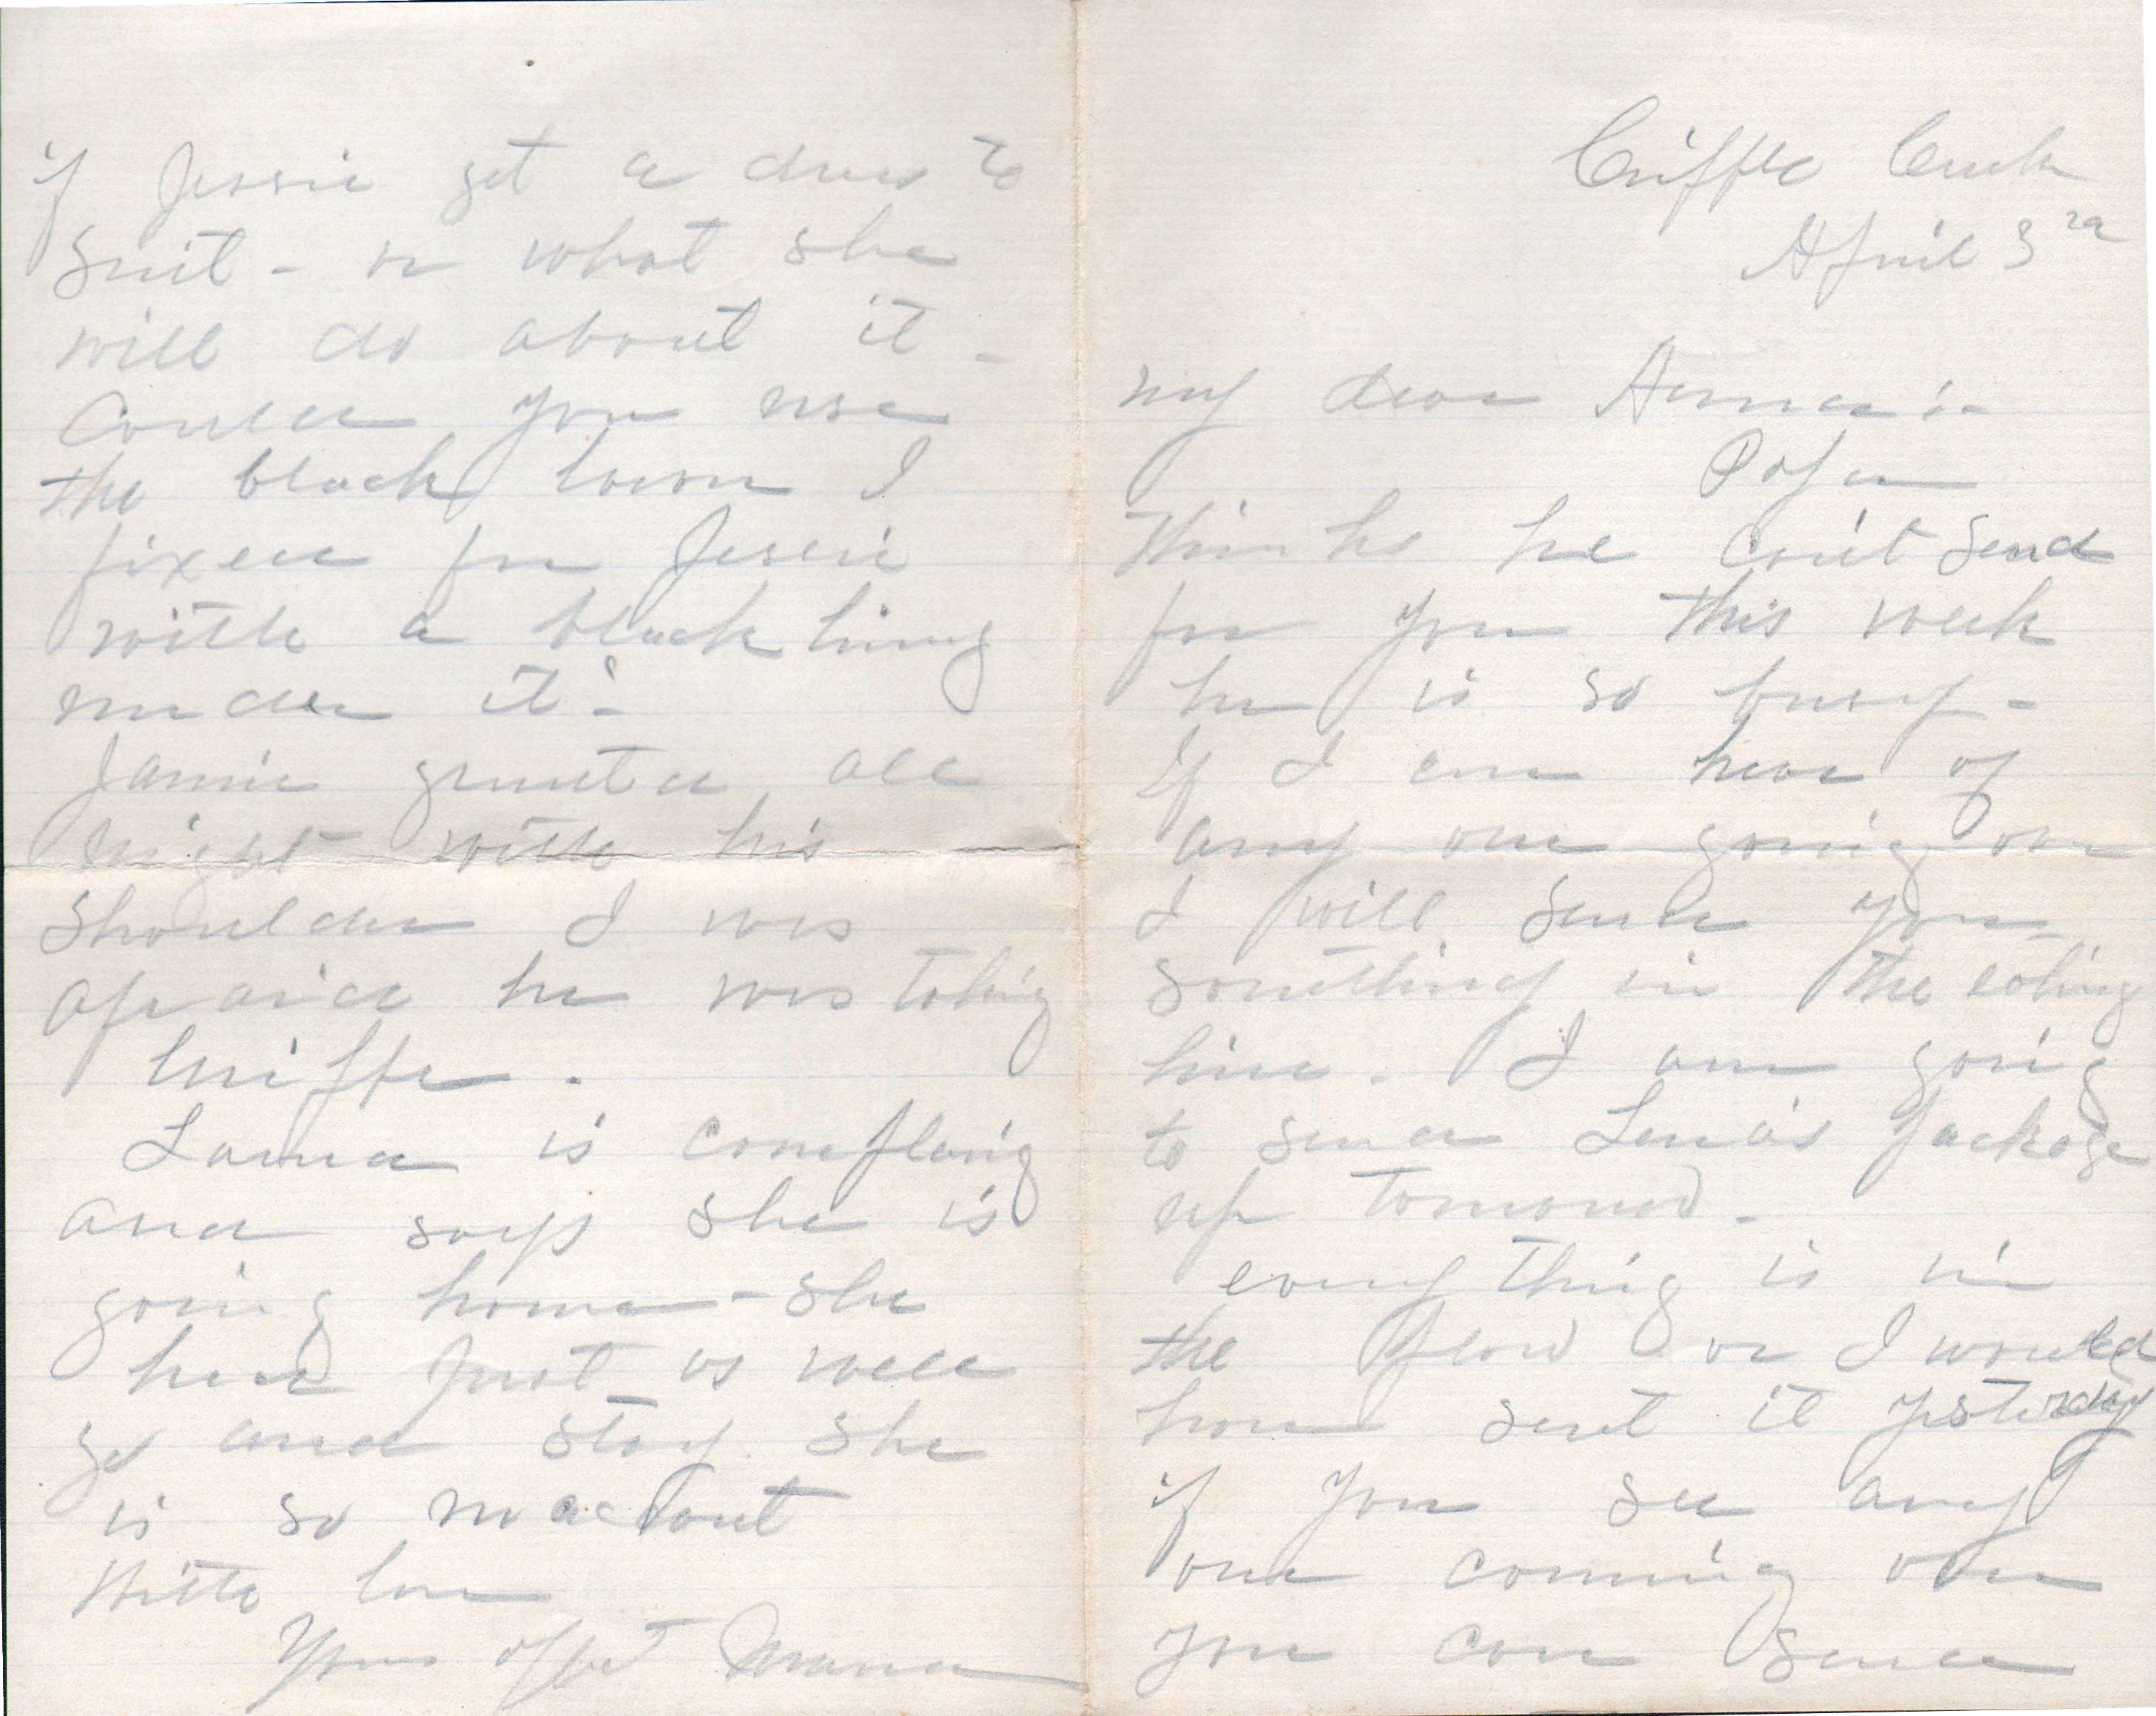 Cripple Creek
April 3rd
My dear Anna :-
Papa
thinks he can't send
for you this week
he is so busy -
If I can hear of
any one going over
I will send you
something in the eating
line. I am going
to send Lena's package
up tomorrow -
every thing is in
the   or I would
have sent it yesterday
if you see any
one coming over
you can send
if Jessie get a dress to
suit - or what she
will do about it -
Could you use
the black lawn I
fixed for Jessie
with a black lining
under it -
Jamie grunted all
night with his
shoulder I was
afraid he was taking
Grippe.
Laura is complaing
and says she is
going home - she
had just as well
go and stay she
is so no account
With love
Yours affect Mama